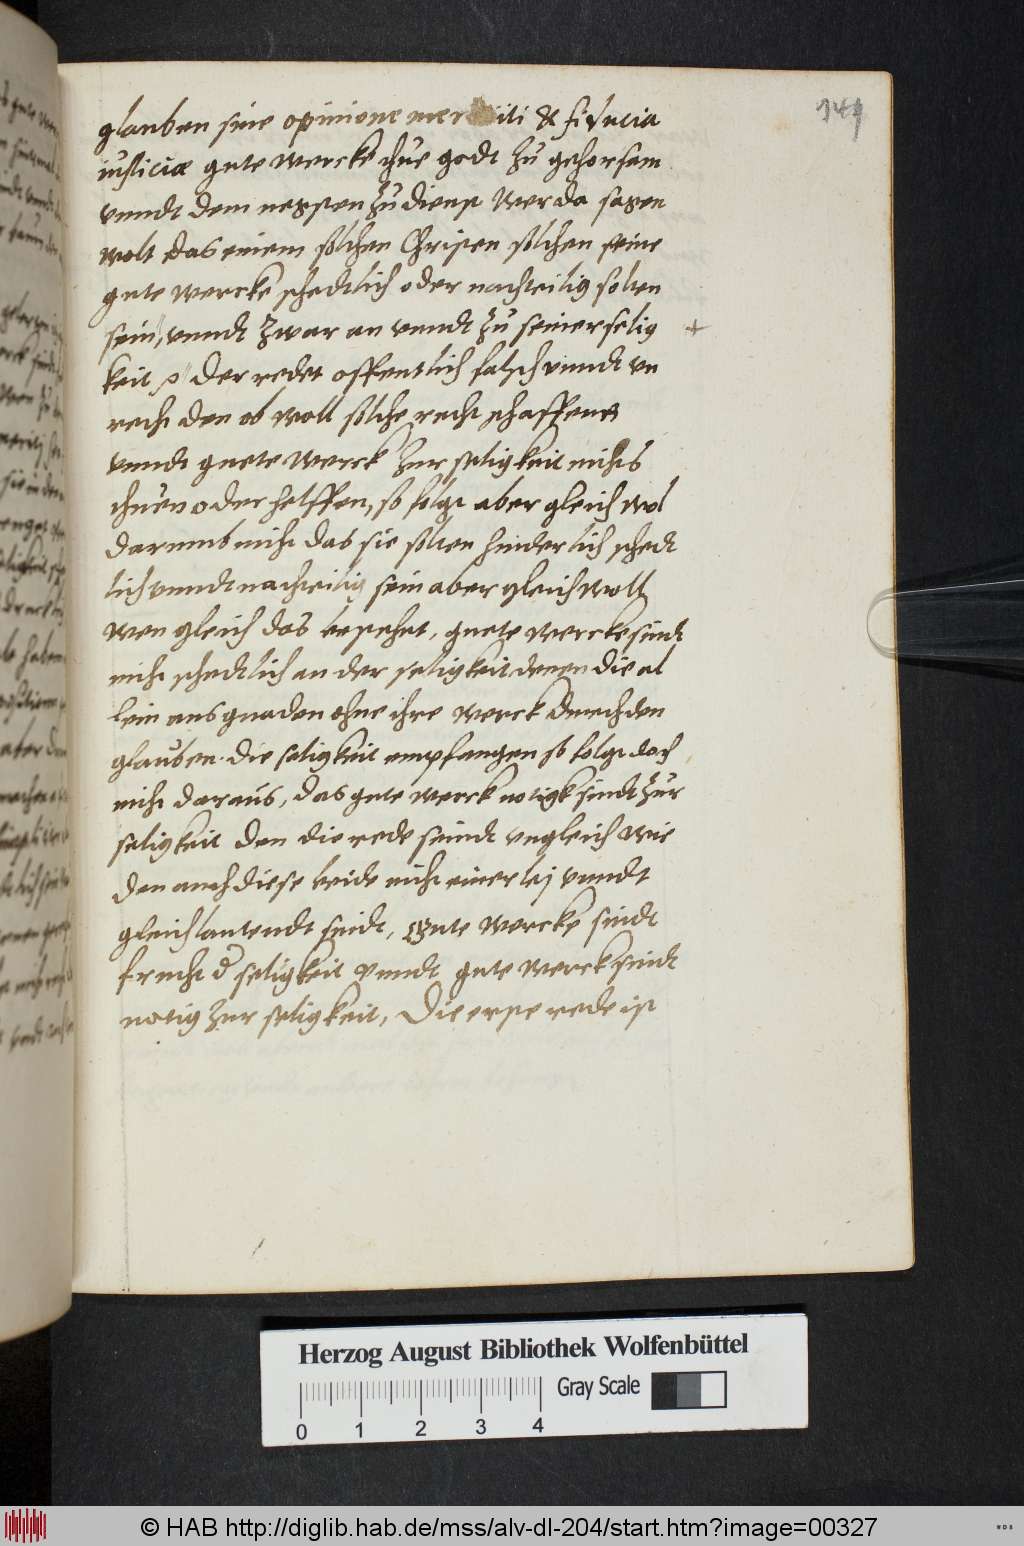 149
glauben sine opinione meriti & fiducia
iusticiæ gute wercke thue godt zu gehorsam
vnndt dem negsten zu dienst Wer da sagen
wolt das einem solchen Christen solchen seine
gute wercke schedtlich oder nachteilig solten
sein, vnndt zwar an vnndt zu seiner selig
keit Der redet offentlich falsch vnndt vn
recht den ob woll solche recht schaffene
vnndt guete werck zur seligkeit nichts
thuen oder helffen, so folgt aber gleich wol
darumb nicht das sie solten hinderlich schedt
lich vnndt nachteilig sein aber gleich woll
wen gleich das bestehet, guete wercke sindt
nicht schedtlich an der seligkeit denen die al
lein aus gnaden ohne ihre werck durch den
glauben die seligkeit empfangen so folgt doch
nicht daraus, das gute werck notigk sindt zur
seligkeit den die rede seindt vngleich wie
den auch diese beide nicht einerlej vnndt
gleichlautendt sindt, Gute wercke sindt
frucht d seligkeit vnndt gute werck sindt
notig zur seligkeit, Die erste rede ist
Herzog August Bibliothek Wolfenbüttel
Gray Scale
0 1 2 3 4
© HAB http://diglib.hab.de/mss/alv-dl-204/start.htm?image=00327